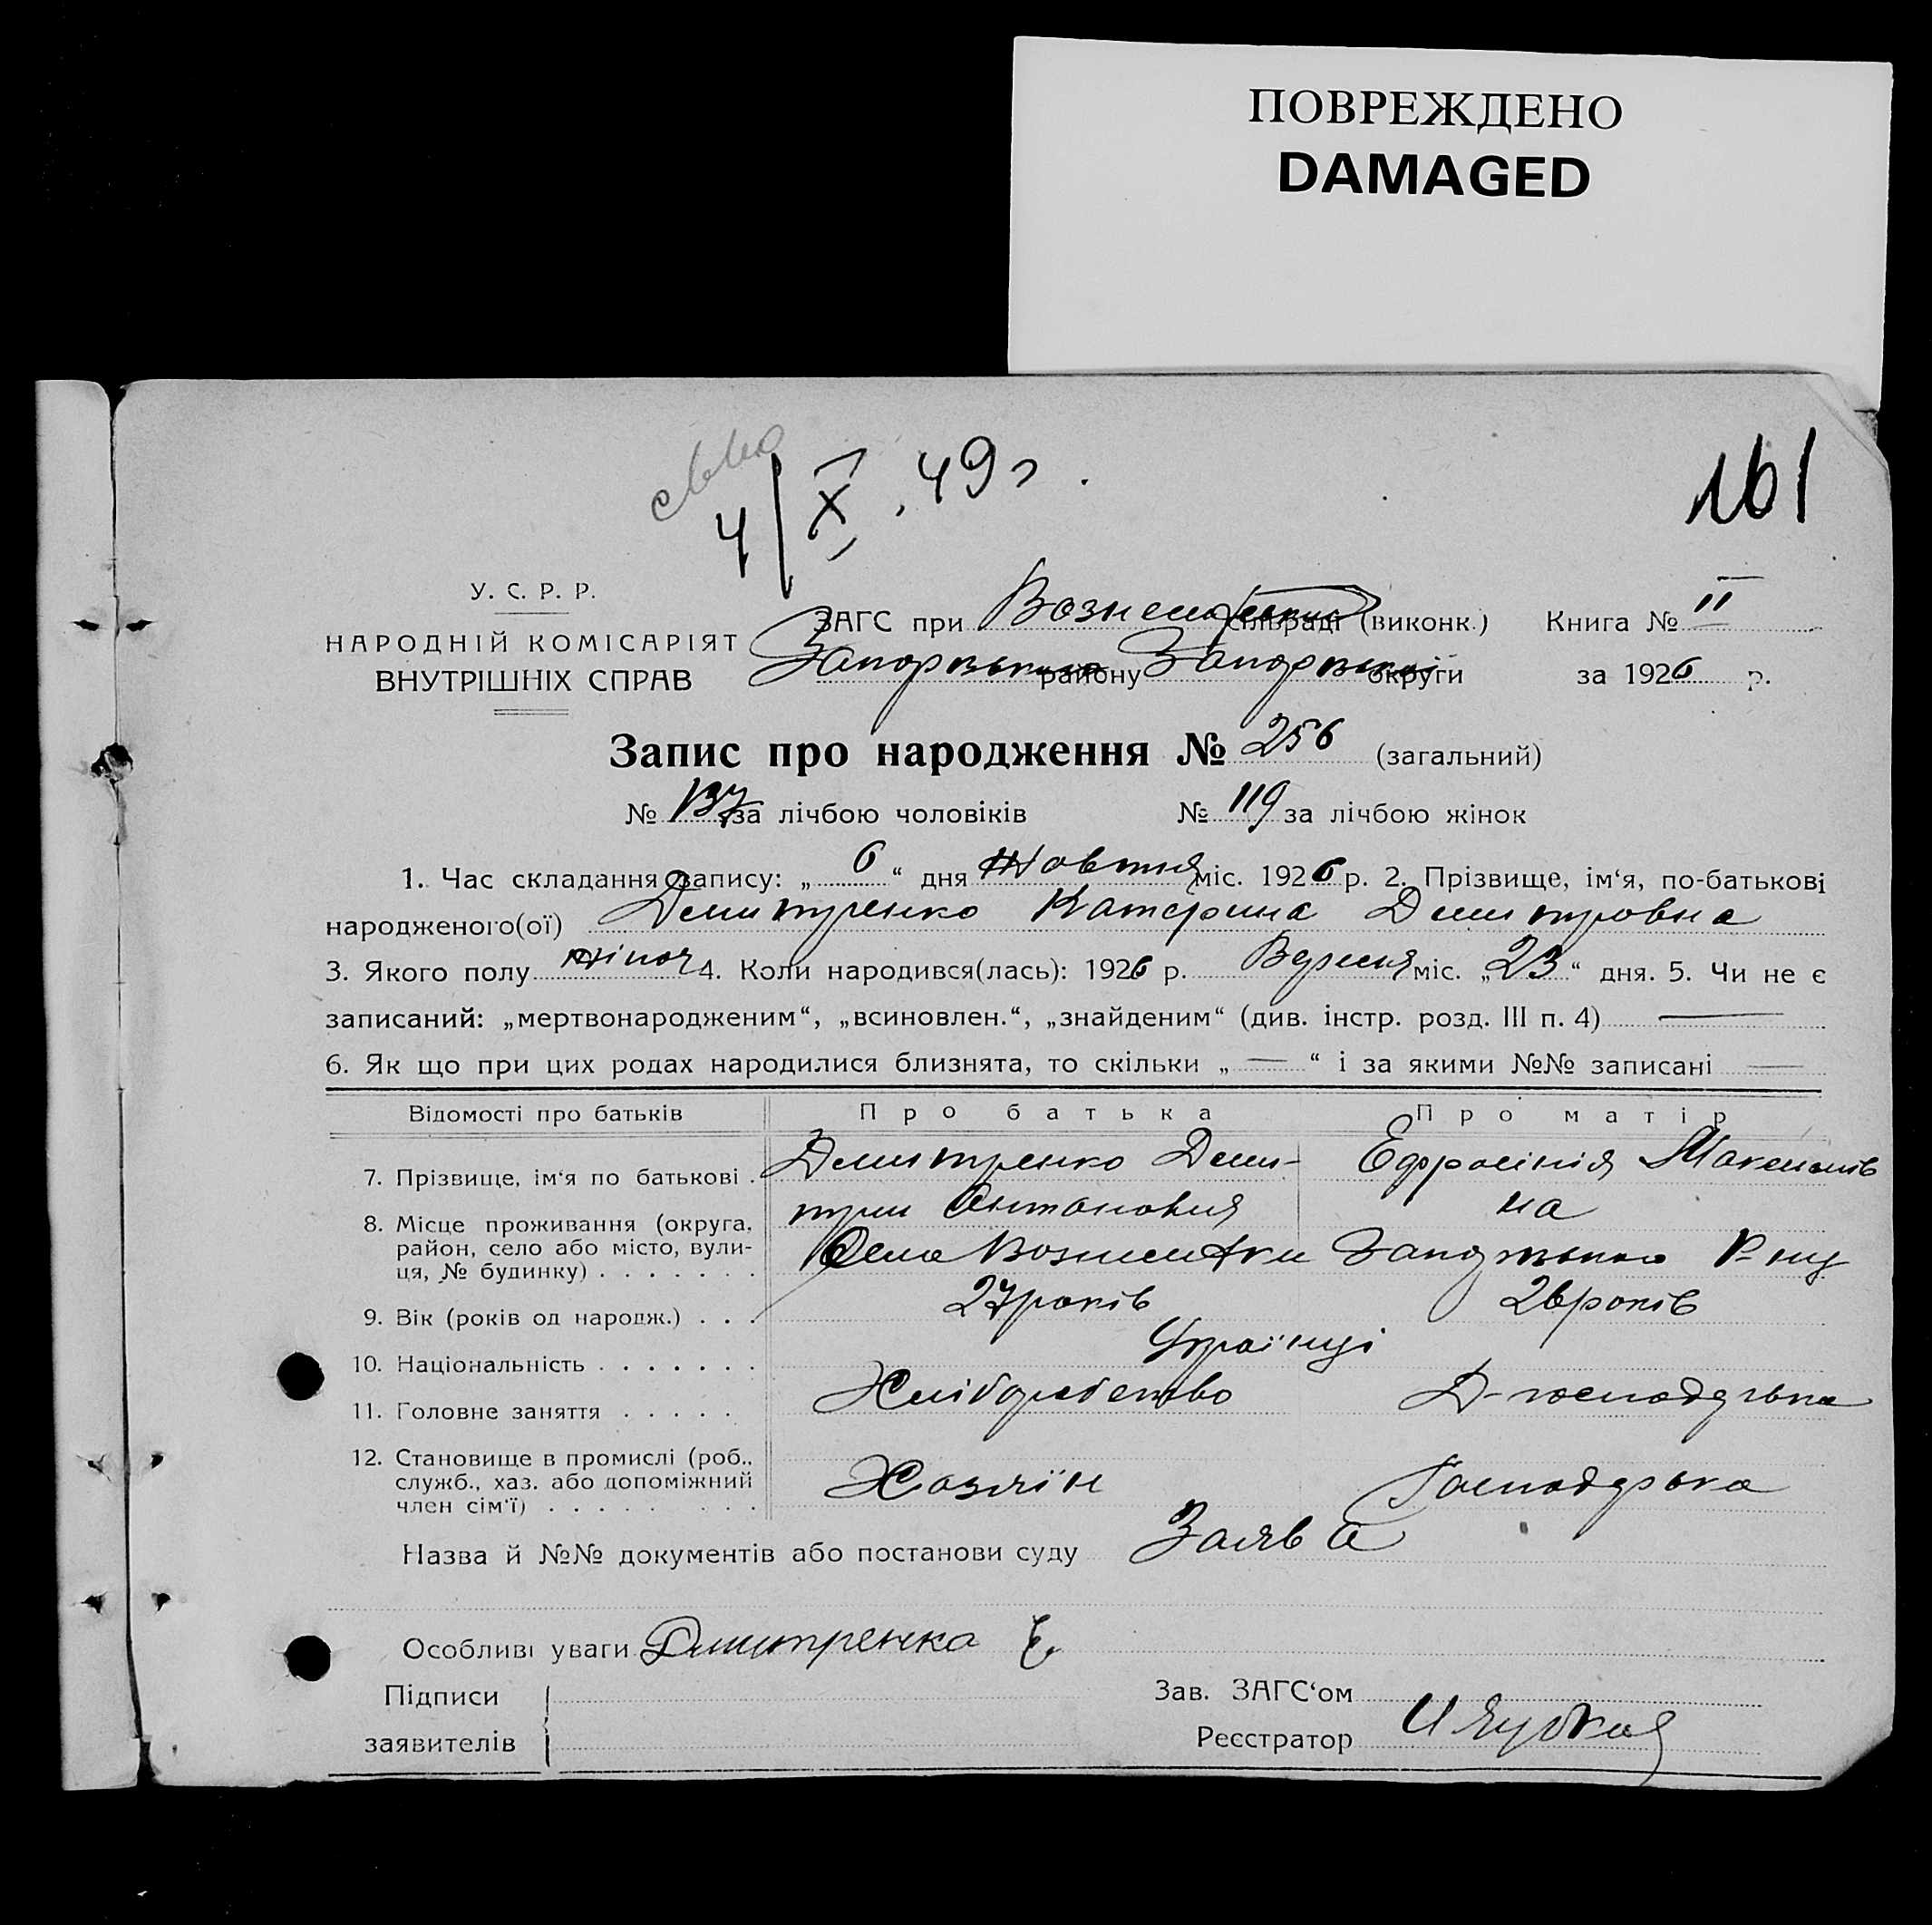 ПОВРЕЖДЕНО
DAMAGED
4/X.49 г.
161
У. С. Р. Р.
НАРОДНІЙ КОМІСАРІЯТ
ВНУТРІШНІХ СПРАВ
ЗАГС при Вознесенській сільраді (виконк.) Книга № II
Запорізького району Запорізької округи за 1926 р.
Запис про народження № 256 (загальний)
№ 137 за лічбою чоловіків № 119 за лічбою жінок
1. Час складання запису: „6“ дня Жовтня міс. 1926 р. 2. Прізвище, ім‘я, по-батькові
народженого(ої) Демитренко Катерина Демитровна
3. Якого полу жіноч 4. Коли народився(лась): 1926 р. Вересня міс. „23“ дня. 5. Чи не є
записаний: „мертвонародженим“, „всиновлен.“, „знайденим“ (див. інстр. розд. III п. 4) —
6. Як що при цих родах народилися близнята, то скільки „—“ і за якими №№ записані —
Відомості про батьків Про батька Про матір
7. Прізвище, ім‘я по батькові . Демитренко Деми- Ефросінія Максимів
трий Антонович на
8. Місце проживання (округа,
район, село або місто, вули-
ця, № будинку) . . . . . . . Село Вознесенки Запорізького Р-ну
9. Вік (років од народж.) . . . 27 років 26 років
10. Національність . . . . . . . Українці
11. Головне заняття . . . . . Хліборобство Д-господарька
12. Становище в промислі (роб.,
служб., хаз. або допоміжний
член сім‘ї) . . . . . . . . . Хозяїн Господарька
Назва й №№ документів або постанови суду Заява
Особливі уваги Дмитренко Е.
Підписи
заявителів
Зав. ЗАГС‘ом
Реєстратор